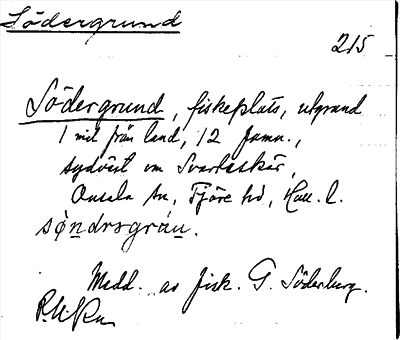 Södergrund
215
Södergrund, fiskeplats, utgrund
1 mil från land, 12 famn.,
sydväst om Svartaskär,
Onsala sn, Fjäre hd, Hall. l.
søndrsgrán.
Medd. av fisk. G. Söderberg.